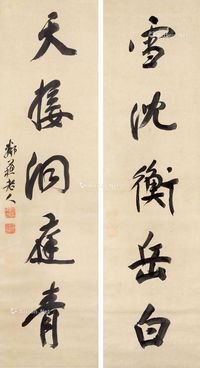 雪沈衡岳白
天接洞庭青
鄰蘇老人